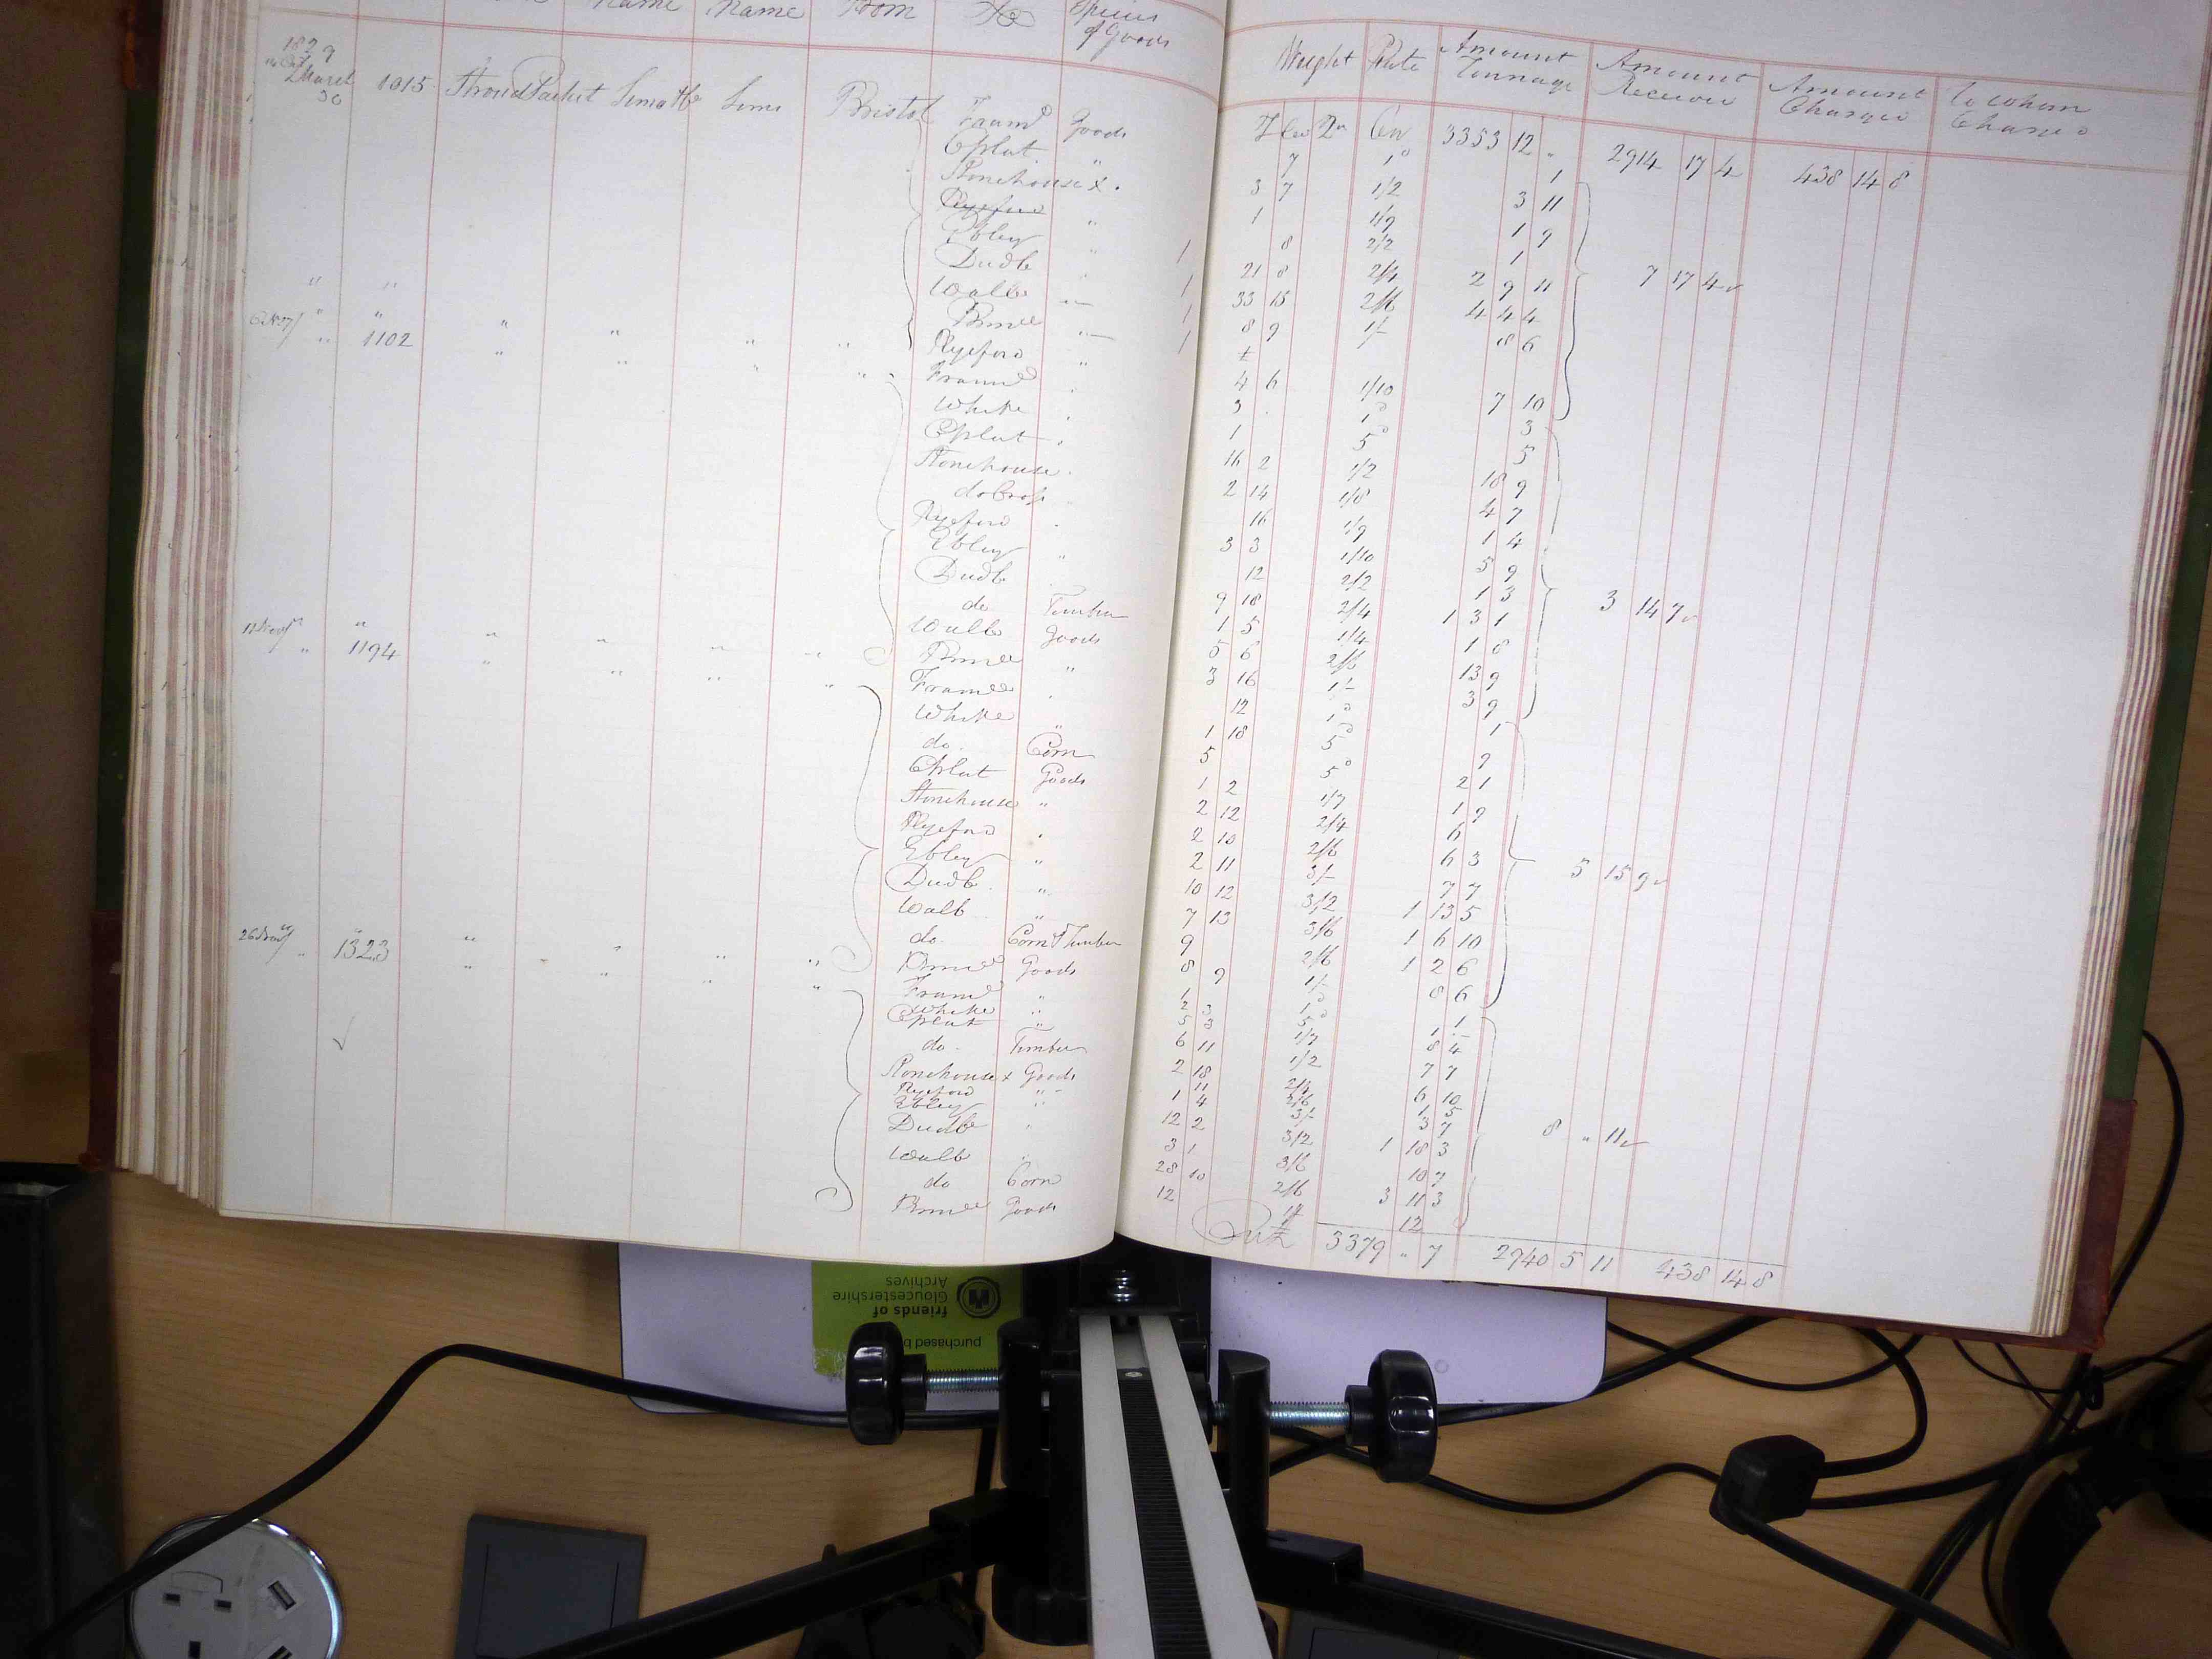 Name Name From To Species
of Goods
Weight Rate Amount Tonnage Amount Receivd Amount Charged to whom Charged
1829
March 30 1015 Stroud Packet Sims Bristol Framd Goods
3353 12 " 2914 17 4 438 14 8
Eplat " 7 1d 1
Stonehouse X 3 7 1/2 3 11
Ryeford
Ebley " 1 1/9 1 9
Dudb 8 2/2 1
Wallb 21 8 2/4 2 9 11 7 17 4
Brimd 33 15 2/6 4 4 4
" 1102 " " " " Ryeford " 8 9 1/- 8 6
Framd 4 6 1/10 7 10
White 3 1d 3
Eplat 1 5d 5
Stonehouse 16 2 1/2 18 9
do Cross 2 14 1/8 4 7
Ryeford 16 1/9 1 4
Ebley " 3 3 1/10 5 9
Dudb 12 2/2 1 3
do Timber 9 18 2/4 1 3 1 3 14 7
Wallb Goods 1 5 1/4 1 8
" 1194 " " " " Brimd " 5 6 2/6 13 9
Framd 3 16 1/- 3 9
White " 12 1d 1
do Corn 1 18 5d 9
Eplat Goods 5 5d 2 1
Stonehouse " 1 2 1/7 1 9
Ryeford 2 12 2/4 6
Ebley " 2 10 2/6 6 3
Dudb " 2 11 3/- 7 7 5 15 9
Wallb " 10 12 3/2 1 13 5
do Corn & Timber 7 13 3/6 1 6 10
26 Novr 1323 " " " " Brimd Goods 9 2/6 1 2 6
Framd " 8 9 1/- 8 6
White " 1 1d 1
Eplat " 2 3 5d
do Timber 5 3 1/7 8 4
Stonehouse x Goods 6 11 1/2 7 7
Ryeford " 2 18 2/4 6 10
Ebley " 11 2/6 1 5
Dudb 1 4 3/- 3 7 8 " 11
Wallb 12 2 3/2 1 18 3
do Corn 3 1 3/6 10 7
Brimd Goods 28 10 2/6 3 11 3
12 1/- 12
3379 " 7 2940 5 11 438 14 8
purchased b
friends of
Gloucestershire
Archives